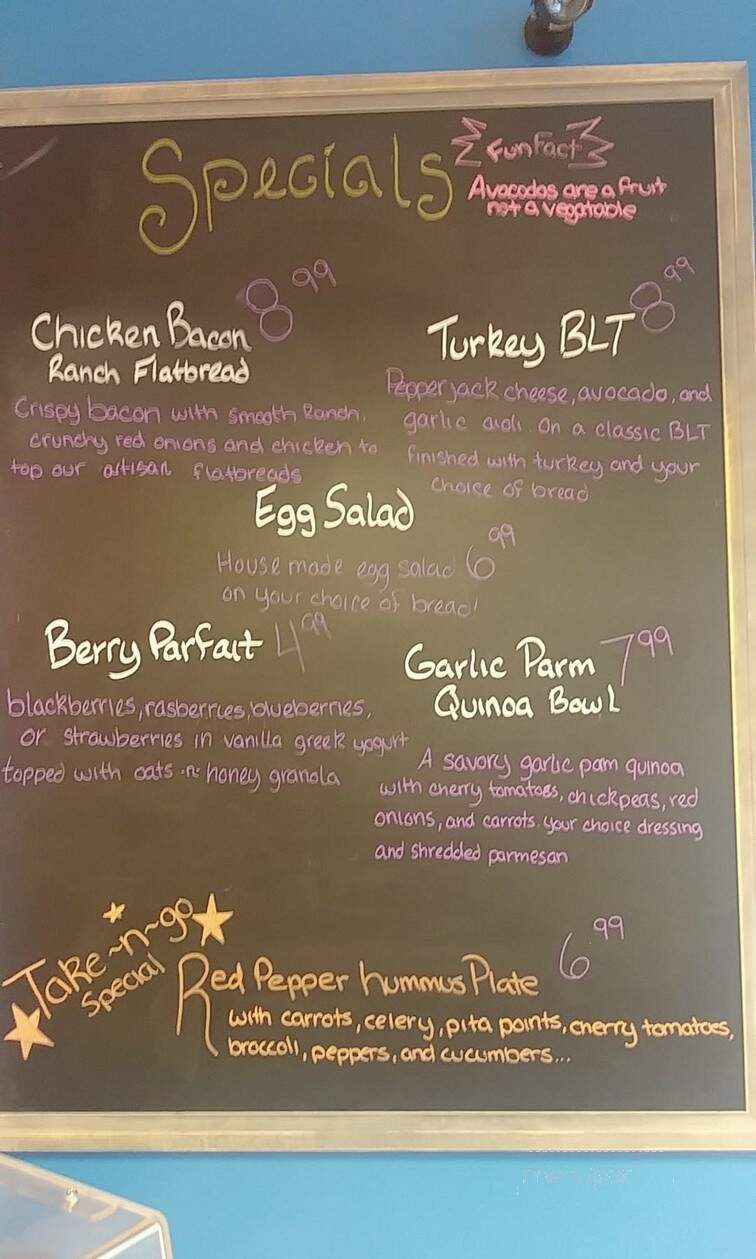 Specials
Fun Fact
Avocados are a fruit
not a vegatable
Chicken Bacon 8 99
Ranch Flatbread
Crispy bacon with smooth Ranch,
crunchy red onions and chicken to
top our artisan flatbreads
Turkey BLT 8 99
Pepperjack cheese, avocado, and
garlic aioli on a classic BLT
finished with turkey and your
choice of bread
Egg Salad
House made egg salad 6 99
on your choice of bread!
Berry Parfait 4 99
blackberries, rasberries, blueberries,
or strawberries in vanilla greek yogurt
topped with oats -n- honey granola
Garlic Parm 7 99
Quinoa Bowl
A savory garlic pam quinoa
with cherry tomatoes, chickpeas, red
onions, and carrots your choice dressing
and shredded parmesan
Take~n~go
Special
Red Pepper hummus Plate 6 99
with carrots, celery, pita points, cherry tomatoes,
broccoli, peppers, and cucumbers...